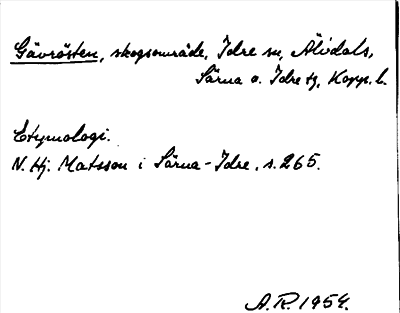 Gävrösten, skogsområde, Idre sn, Älvdals,
Särna o. Idre tg, Kopp. l.
Etymologi.
N. Hj. Matsson i Särna-Idre, s. 265.
A.R. 1954.